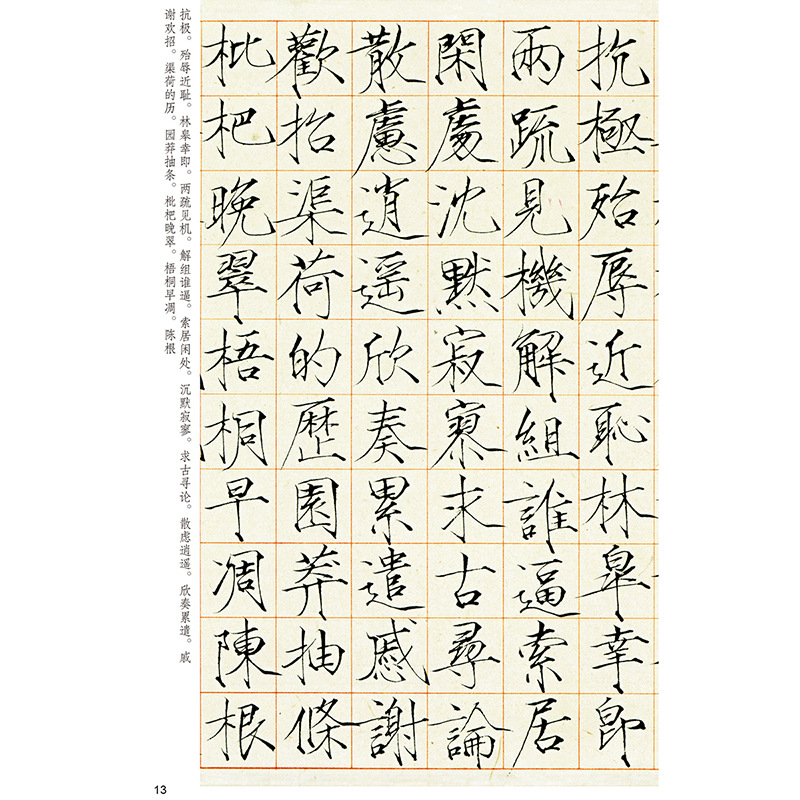 抗極殆辱近恥林皋幸即
兩疏見機解組誰逼索居
閑處沈默寂寥求古尋論
散慮逍遥欣奏累遣慼謝
歡招渠荷的歷園莽抽條
枇杷晚翠梧桐早凋陳根
抗极。殆辱近耻。林皋幸即。两疏见机。解组谁逼。索居闲处。沉默寂寥。求古寻论。散虑逍遥。欣奏累遣。戚
谢欢招。渠荷的历。园莽抽条。枇杷晚翠。梧桐早凋。陈根
13